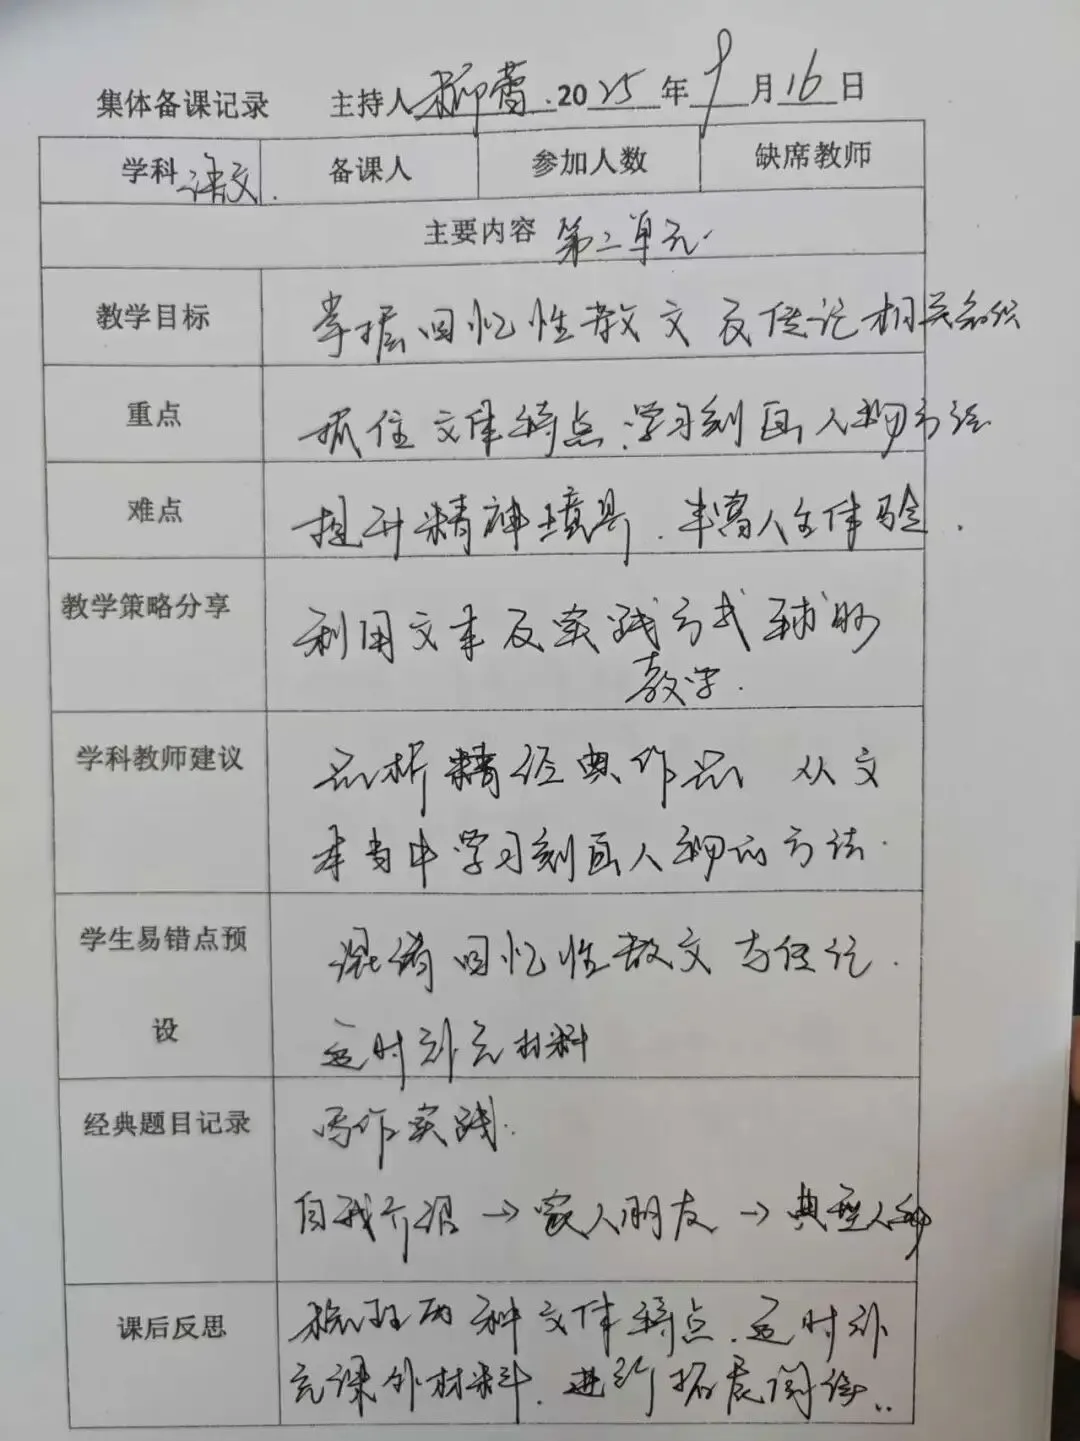 集体备课记录 主持人 柳蕾 2025年9月16日
学科 语文. 备课人 参加人数 缺席教师
主要内容 第二单元.
教学目标 掌握回忆性散文及传记相关知识
重点 抓住文体特点.学习刻画人物方法
难点 提升精神境界.丰富人生体验.
教学策略分享 利用文本及实践方式辅助
教学.
学科教师建议 品析精经典作品 从文
本当中学习刻画人物的方法.
学生易错点预 混淆回忆性散文与传记.
设 适时补充材料
经典题目记录 写作实践:
自我介绍→家人朋友→典型人物
课后反思 梳理两种文体特点.适时补
充课外材料.进行拓展阅读..